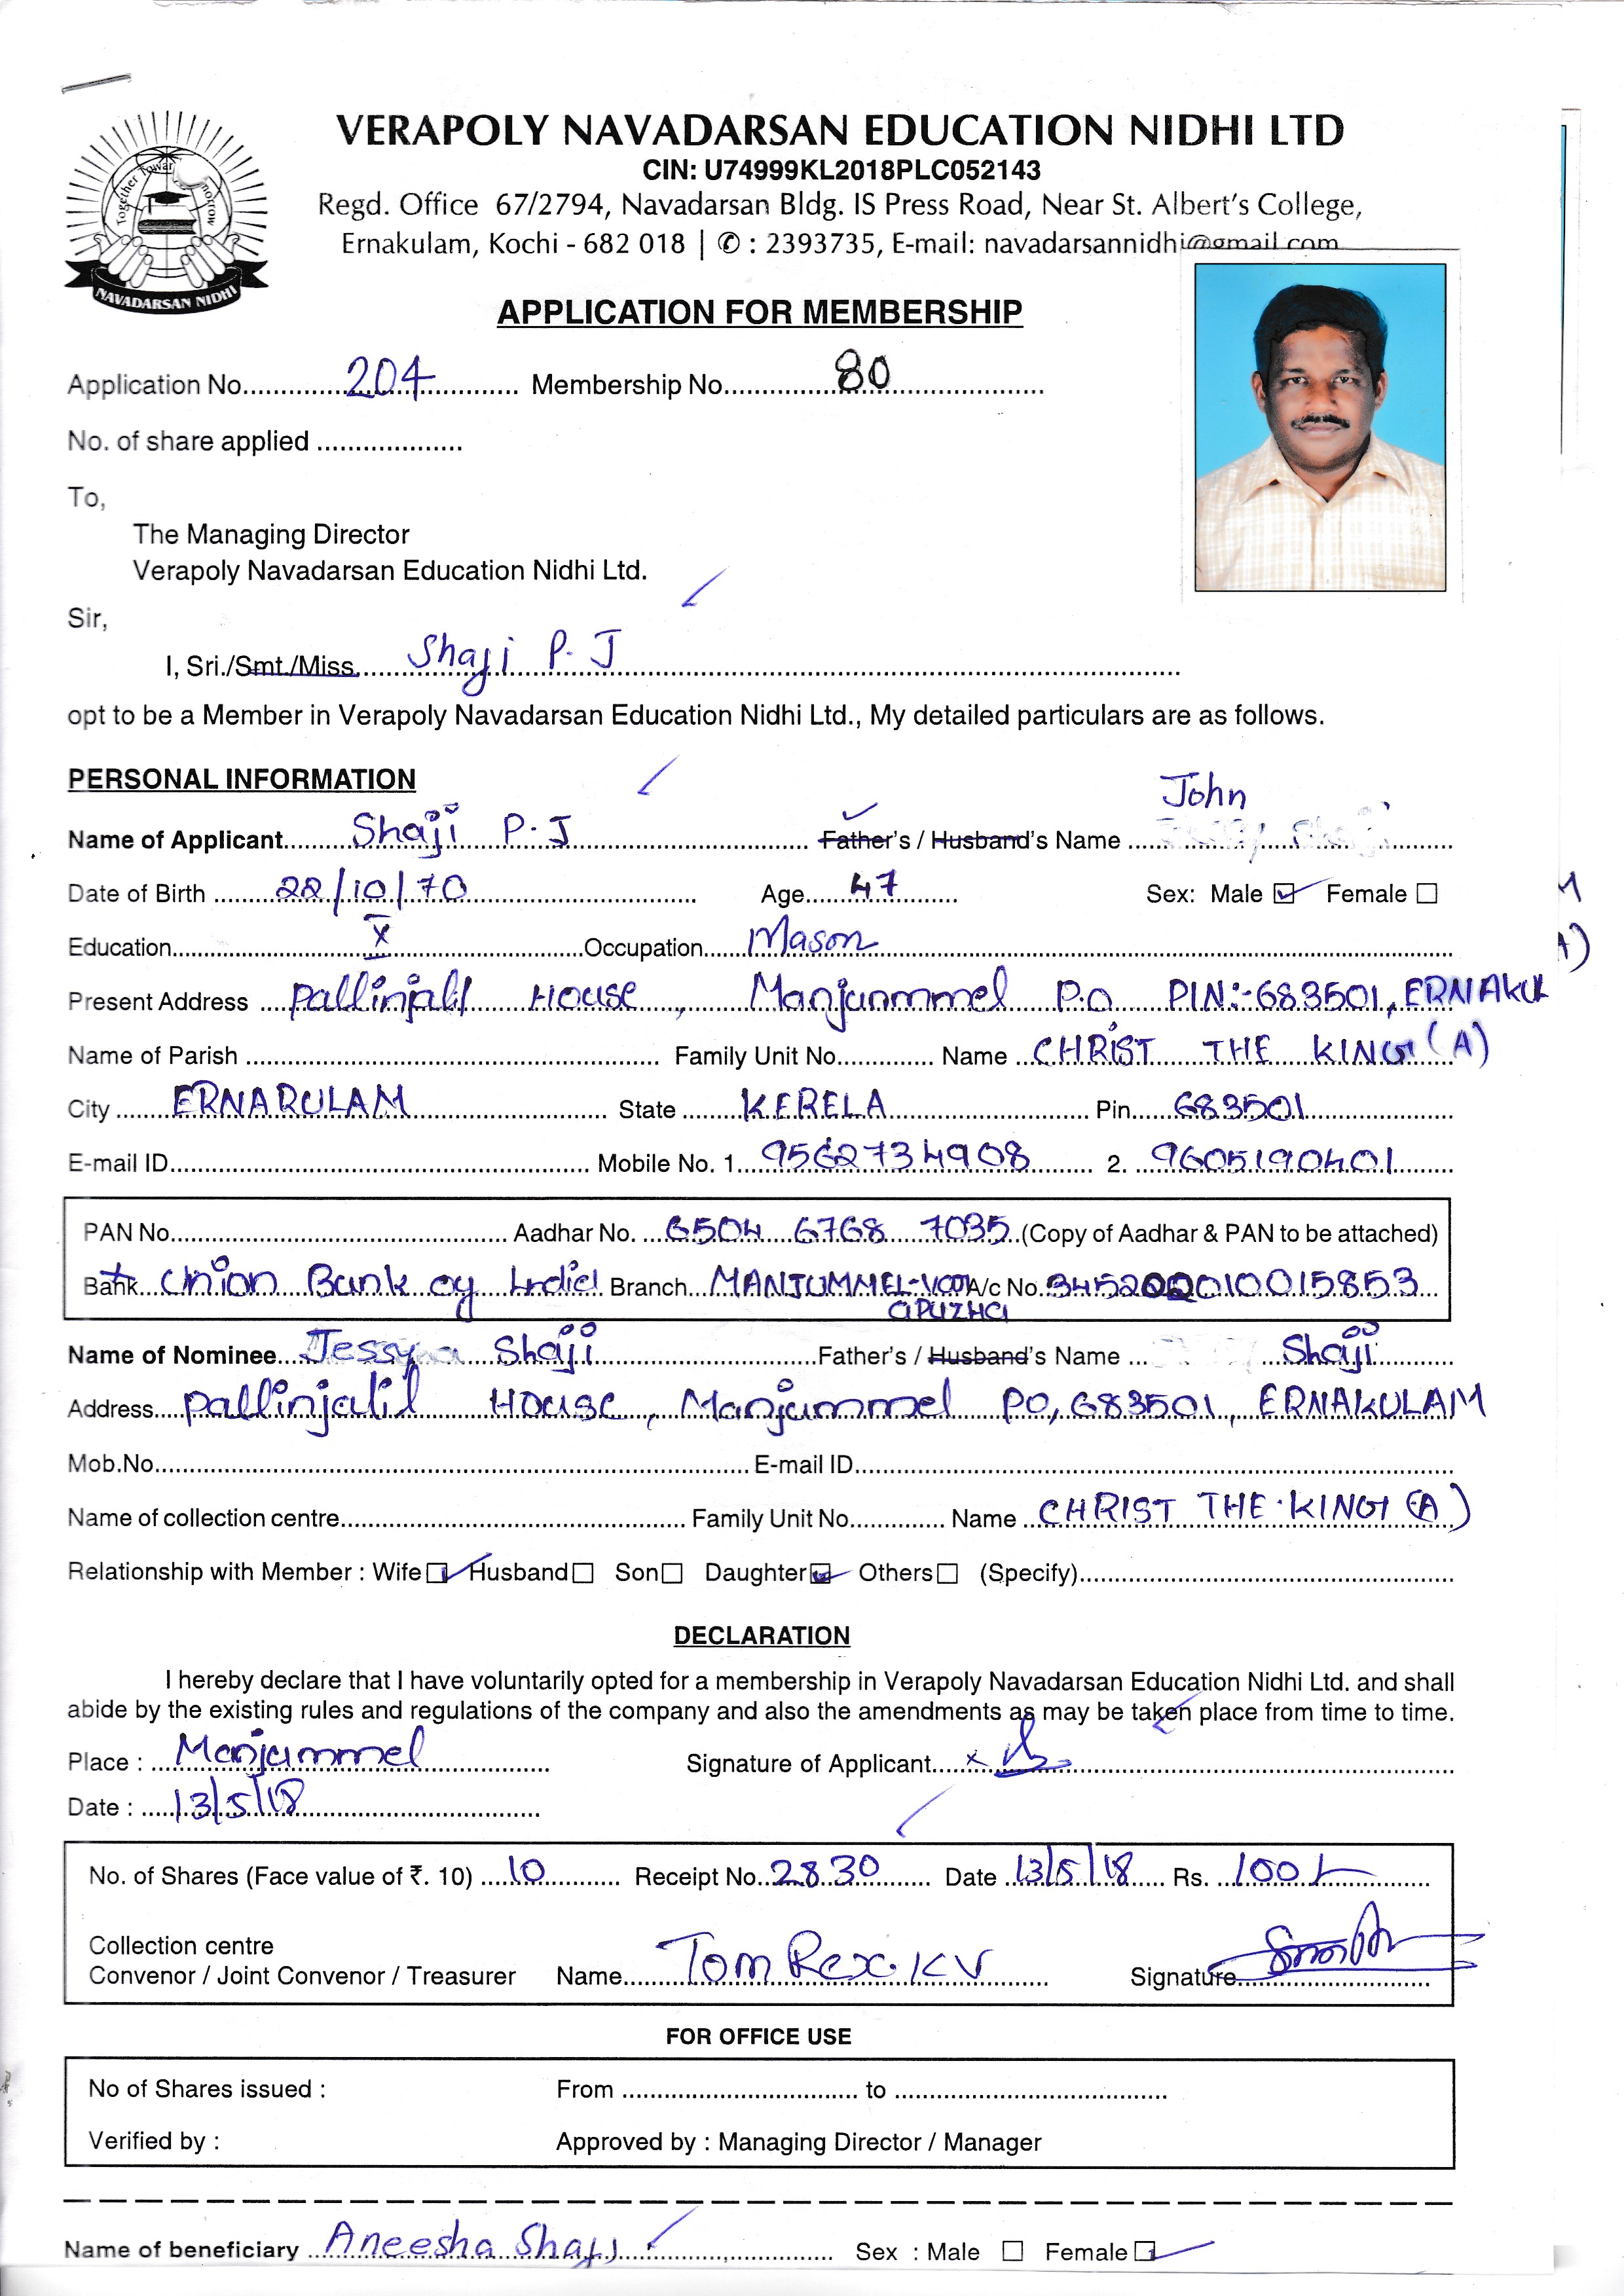 VERAPOLY NAVADARSAN EDUCATION NIDHI LTD
CIN: U74999KL2018PLC052143
Regd. Office 67/2794, Navadarsan Bldg. IS Press Road, Near St. Albert's College,
Ernakulam, Kochi - 682 018 | ✆ : 2393735, E-mail: navadarsannidhi@gmail.com
NAVADARSAN NIDHI
APPLICATION FOR MEMBERSHIP
Application No. 204 Membership No. 80
No. of share applied
To,
The Managing Director
Verapoly Navadarsan Education Nidhi Ltd.
Sir,
I, Sri./Smt./Miss. Shaji P. J
opt to be a Member in Verapoly Navadarsan Education Nidhi Ltd., My detailed particulars are as follows.
PERSONAL INFORMATION
John
Name of Applicant Shaji P. J Father's / Husband's Name
Date of Birth 22/10/70 Age 47 Sex: Male ☑ Female ☐
Education X Occupation Mason
Present Address Pallinjalil House, Manjunmmel P.o PIN:-683501, ERNAKUL
Name of Parish Family Unit No. Name CHRIST THE KING (A)
City ERNARULAM State KERELA Pin 683501
E-mail ID Mobile No. 1. 9562734908 2. 9605190401
PAN No. Aadhar No. 6504 6768 7035 (Copy of Aadhar & PAN to be attached)
Bank Union Bank of India Branch MANJUMMEL- A/c No. 345202010015853
Name of Nominee Jessy Shaji Father's / Husband's Name Shaji
Address Pallinjalil House, Manjummel PO, 683501, ERNAKULAM
Mob.No. E-mail ID
Name of collection centre Family Unit No. Name CHRIST THE KING (A)
Relationship with Member : Wife ☑ Husband ☐ Son ☐ Daughter ☑ Others ☐ (Specify)
DECLARATION
I hereby declare that I have voluntarily opted for a membership in Verapoly Navadarsan Education Nidhi Ltd. and shall
abide by the existing rules and regulations of the company and also the amendments as may be taken place from time to time.
Place : Manjummel Signature of Applicant x
Date : 13/5/18
No. of Shares (Face value of ₹. 10) 10 Receipt No. 2830 Date 13/5/18 Rs. 100/-
Collection centre
Convenor / Joint Convenor / Treasurer Name Tom Rex. K V Signature
FOR OFFICE USE
No of Shares issued : From to
Verified by : Approved by : Managing Director / Manager
Name of beneficiary Aneesha Shaji Sex : Male ☐ Female ☑